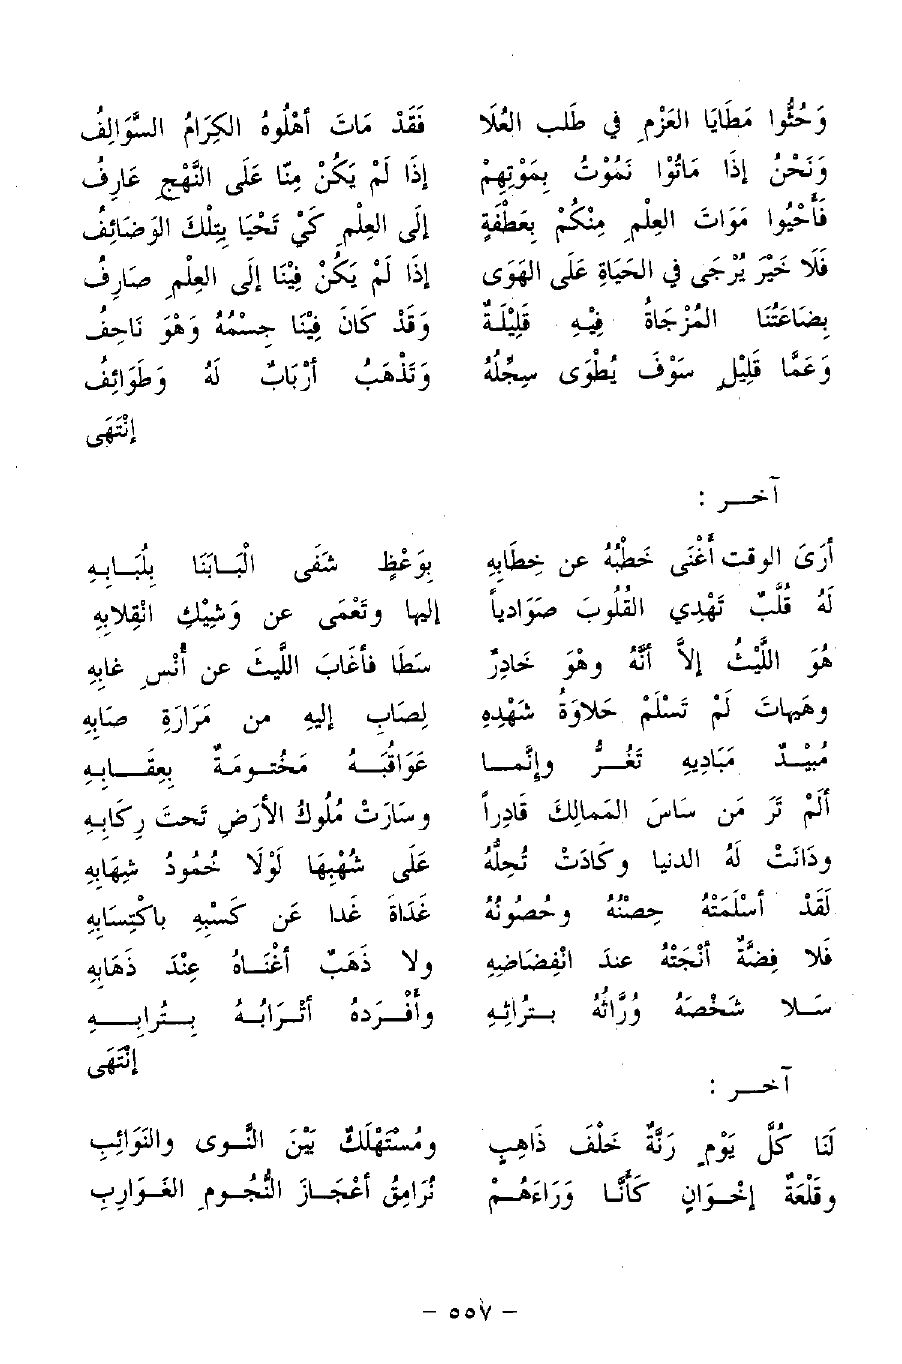 وَحُثُّوا مَطَايَا العَزْمِ في طَلب العُلَا فَقَدْ مَاتَ أهْلُوهُ الكِرَامُ السَّوَالِفُ
وَنَحْنُ إذَا مَاتُوْا نَمُوْتُ بِمَوْتِهِمْ إذَا لَمْ يَكُنْ مِنَّا عَلَى النَّهْجِ عَارِفُ
فَأَحْيُوا مَوَاتَ العِلْمِ مِنْكُمْ بِعَطْفَةٍ إلَى العِلْمِ كَيْ تَحْيَا بِتِلْكَ الوَضَائِفُ
فَلَا خَيْرَ يُرْجَى في الحَيَاةِ عَلَى الهَوَى إذَا لَمْ يَكُنْ فِيْنَا إلَى العِلْمِ صَارِفُ
بِضَاعَتُنَا المُزْجَاةُ فِيْهِ قَلِيْلَةٌ وَقَدْ كَانَ فِيْنَا جِسْمُهُ وَهْوَ نَاحِفُ
وَعَمَّا قَلِيْلٍ سَوْفَ يُطْوَى سِجِّلُهُ وَتَذْهَبُ أرْبَابٌ لَهُ وَطَوَائِفُ
إنْتَهَى
آخـر :
أرَىَ الوقت أَغْنَى خَطْبُهُ عن خِطَابِهِ بِوَعْظٍ شَفَى الْبَـابَنَا بِلُبَـابِـهِ
لَهُ قُلَّبٌ تَهْدِي القُلُوبَ صَوَادِياً إليها وتَعْمَى عن وَشِيْكِ انْقِلابِهِ
هُوَ اللَّيْثُ إلاَّ أنَّهُ وهْوَ خَادِرٌ سَطَا فأغَابَ اللَّيثَ عن أُنْسِ غابِهِ
وهَيهاتَ لَمْ تَسْلَمْ حَلاوَةُ شَهْدِهِ لِصَابٍ إليهِ من مَرَارَةِ صَابِهِ
مُبِيْـدٌ مَبَادِيهِ تَغُـرُّ وإنَّمـا عَوَاقُبَـهُ مَخْتـومَةٌ بِعِقَـابِـهِ
ألَمْ تَرَ مَن سَاسَ المَمالِكَ قَادِراً وسَارَتْ مُلُوكُ الأرْضِ تَحتَ رِكَابِهِ
ودَانَتْ لَهُ الدنيا وكَادَتْ تُجِلُّهُ عَلَى شُهْبِهَا لَوْلَا خُمُودُ شِهَابِهِ
لَقَدْ أسْلَمَتْهُ حِصْنُهُ وحُصُونُهُ غَدَاةَ غَدا عَن كَسْبِهِ باكْتِسَابِهِ
فَلا فِضَّةٌ أنْجَتْهُ عندَ انْفِضَاضِهِ ولا ذَهَبٌ أغْنَـاهُ عِنْدَ ذَهَابِهِ
سَـلا شَخْصَهُ وُرَّاثُهُ بـتُراثِـهِ وأَفْـرَدهُ أتْـرَابُـهُ بِـتُرابِـهِ
إنْتَهَى
آخـر :
لَنَا كُلَّ يَوْمٍ رَنَّةٌ خَلْفَ ذَاهِبٍ ومُسْتَهْلَكٌ بَيْنَ النَّـوى والنَوَائِبِ
وقَلْعَةُ إخْـوَانٍ كَأنَّـا وَرَاءَهُـمْ نُرَامِقُ أعْجَـازَ النُّجُـومِ الغَـوَارِبِ
– ٥٥٧ –